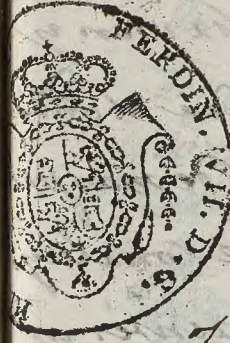 FERDIN. VII. D. G.